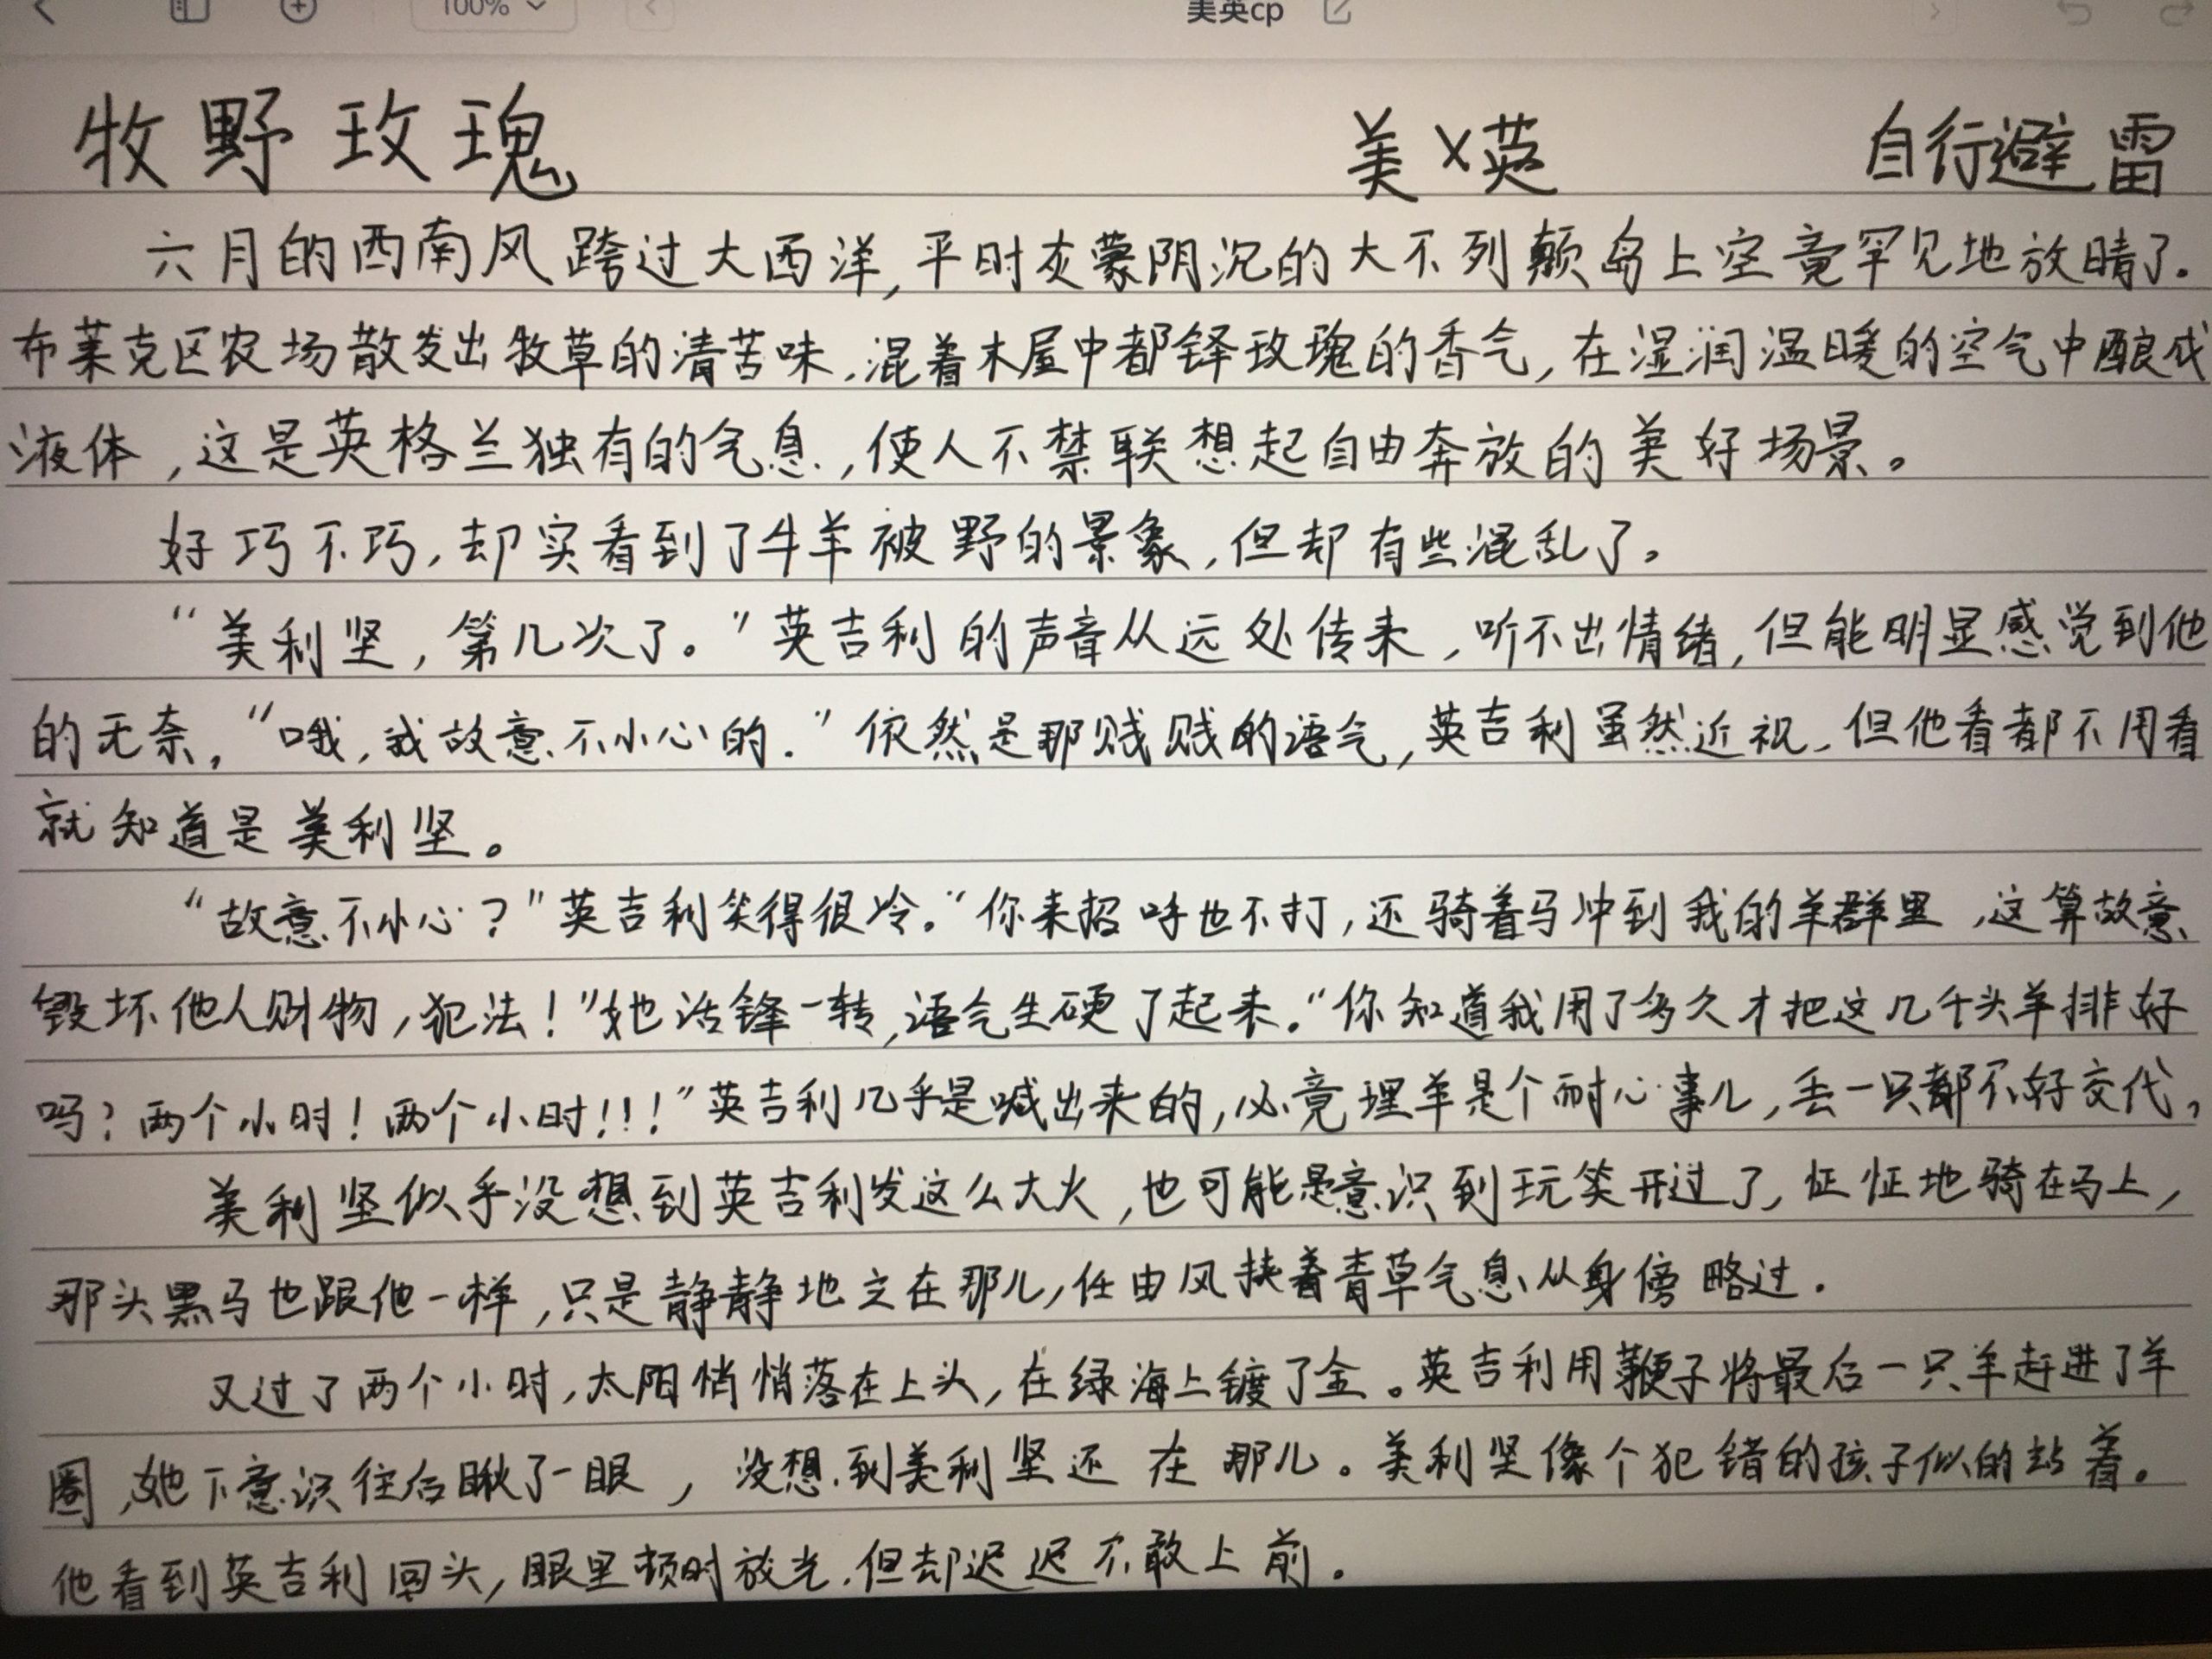 100%
美英cp
牧野玫瑰 美×英 自行避雷
六月的西南风跨过大西洋,平时灰蒙阴沉的大不列颠岛上空竟罕见地放晴了.
布莱克区农场散发出牧草的清苦味,混着木屋中都铎玫瑰的香气,在湿润温暖的空气中酿成
液体,这是英格兰独有的气息,使人不禁联想起自由奔放的美好场景。
好巧不巧,却实看到了牛羊被野的景象,但却有些混乱了。
“美利坚,第几次了。”英吉利的声音从远处传来,听不出情绪,但能明显感觉到他
的无奈,“哦,我故意不小心的.”依然是那贱贱的语气,英吉利虽然近视,但他看都不用看
就知道是美利坚。
“故意不小心?”英吉利笑得很冷。“你来招呼也不打,还骑着马冲到我的羊群里,这算故意
毁坏他人财物,犯法!”她话锋一转,语气生硬了起来。“你知道我用了多久才把这几千头羊排好
吗?两个小时!两个小时!!!”英吉利几乎是喊出来的,必竟理羊是个耐心事儿,丢一只都不好交代,
美利坚似乎没想到英吉利发这么大火,也可能是意识到玩笑开过了,怔怔地骑在马上,
那头黑马也跟他一样,只是静静地立在那儿,任由风挟着青草气息从身傍略过.
又过了两个小时,太阳悄悄落在上头,在绿海上镀了金。英吉利用鞭子将最后一只羊赶进了羊
圈,她下意识往后瞅了一眼,没想到美利坚还在那儿。美利坚像个犯错的孩子似的站着。
他看到英吉利回头,眼里顿时放光,但却迟迟不敢上前.